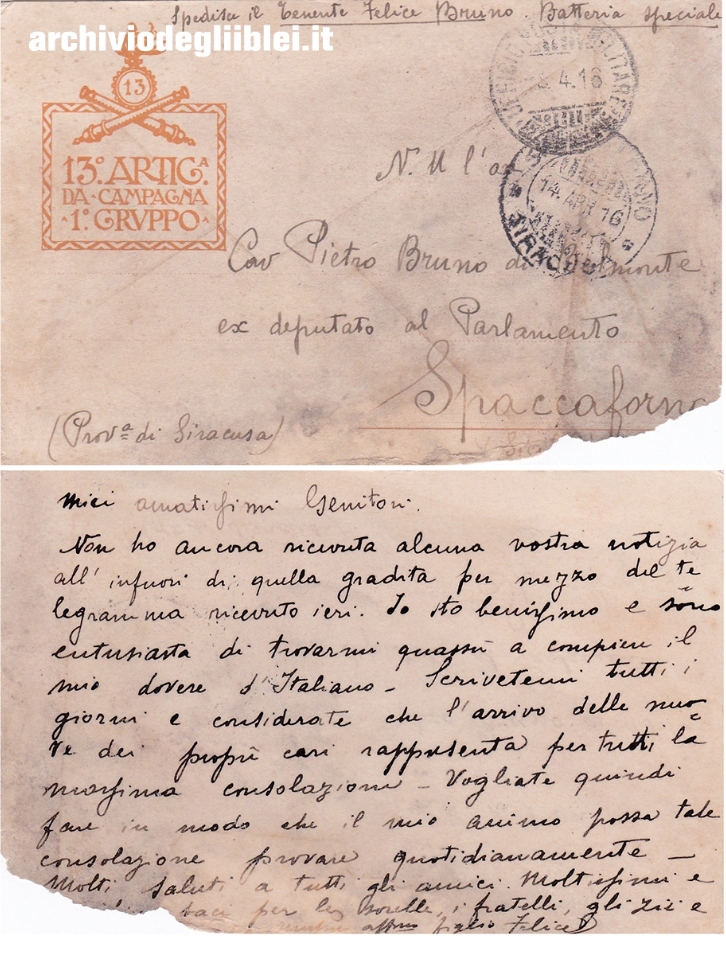 Spedisce il Tenente Felice Bruno. Batteria speciale
archiviodegliiblei.it
13
13º. ARTIG.A
DA · CAMPAGNA
· 1º GRVPPO ·
4.16
14. APR 16
N. U l'o
Cav Pietro Bruno di Belmonte
ex deputato al Parlamento
Spaccaforno
(Prov.a di Siracusa)
Miei amatissimi Genitori.
Non ho ancora ricevuta alcuna vostra notizia
all'infuori di quella gradita per mezzo del te
legramma ricevuto ieri. Io sto benissimo e sono
entusiasta di trovarmi quassù a compiere il
mio dovere d'Italiano – Scrivetemi tutti i
giorni e considerate che l'arrivo delle nuo
ve dei proprii cari rappresenta per tutti la
massima consolazione – Vogliate quindi
fare in modo che il mio animo possa tale
consolazione provare quotidianamente –
Molti saluti a tutti gli amici. Moltissimi e
baci per le sorelle, i fratelli, gli zii e
figlio Felice